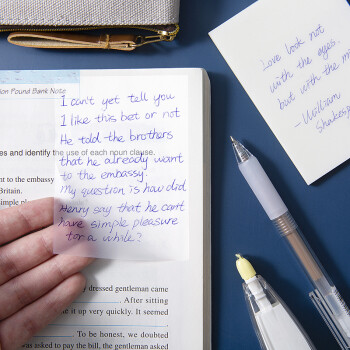 ion Pound Bank Note
I can't yet tell you
I like this bet or not
He told the brothers
es and identify the use of each noun clause.
that he already want
to the embassy.
nt to the embassy
My question is how did
Britain.
Henry say that he can't
simple
have simple pleasure
for a while?
dressed gentleman came
. After sitting
it up very quickly. It seemed
. To be honest, we doubted
was asked to pay the bill, the gentleman asked
Love look not
with the eyes,
but with the mi
-William
Shakesp